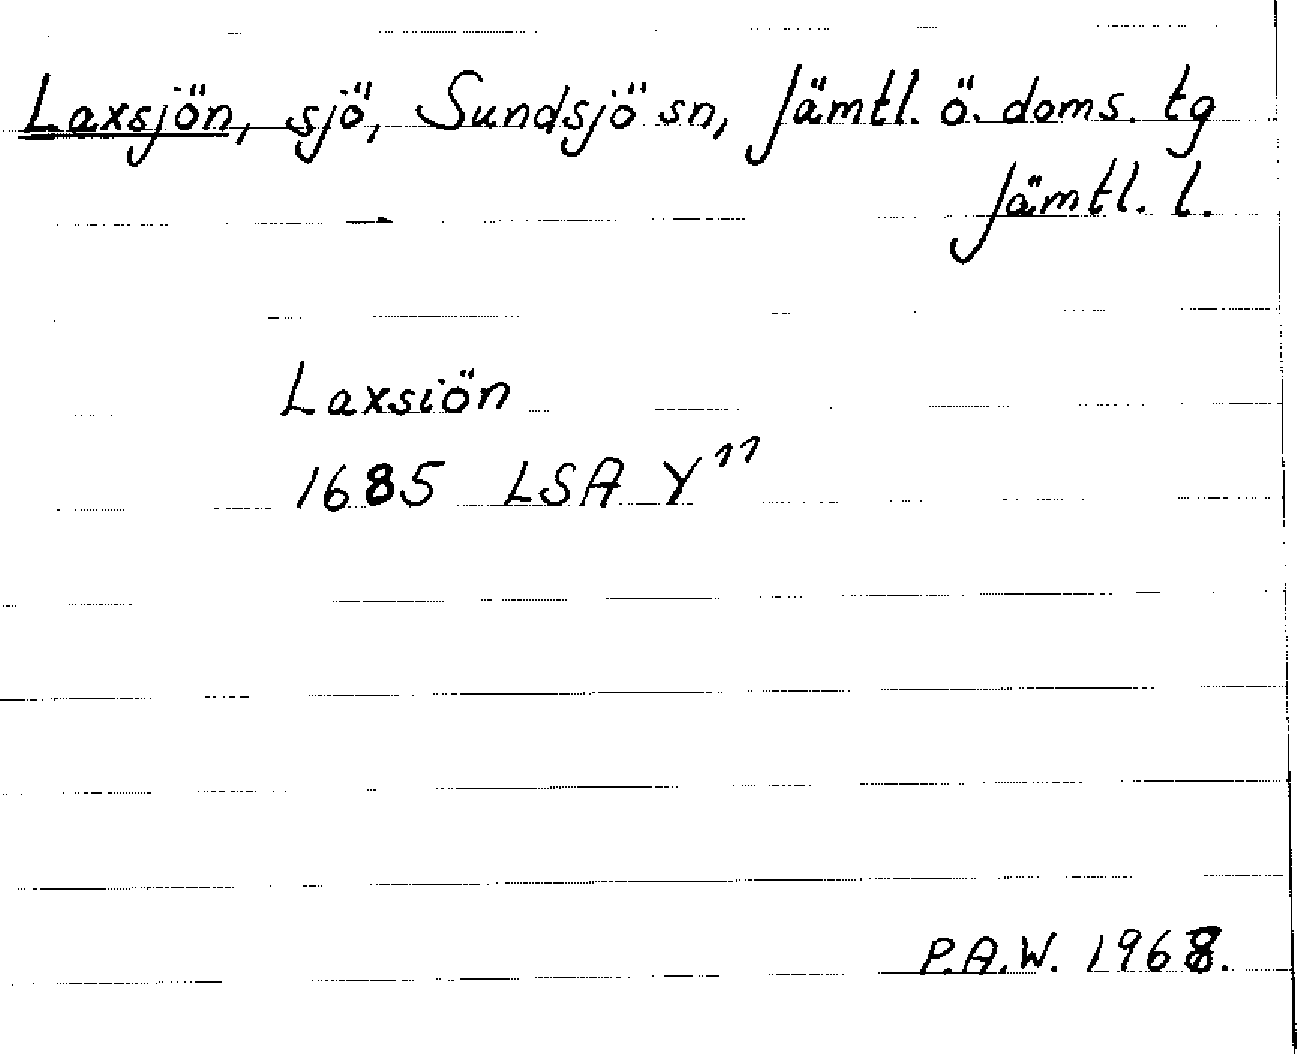 Laxsjön, sjö, Sundsjö sn, Jämtl. ö. doms. tg
Jämtl. l.
Laxsiön
1685 LSA Y¹¹
P.A.W. 1968.